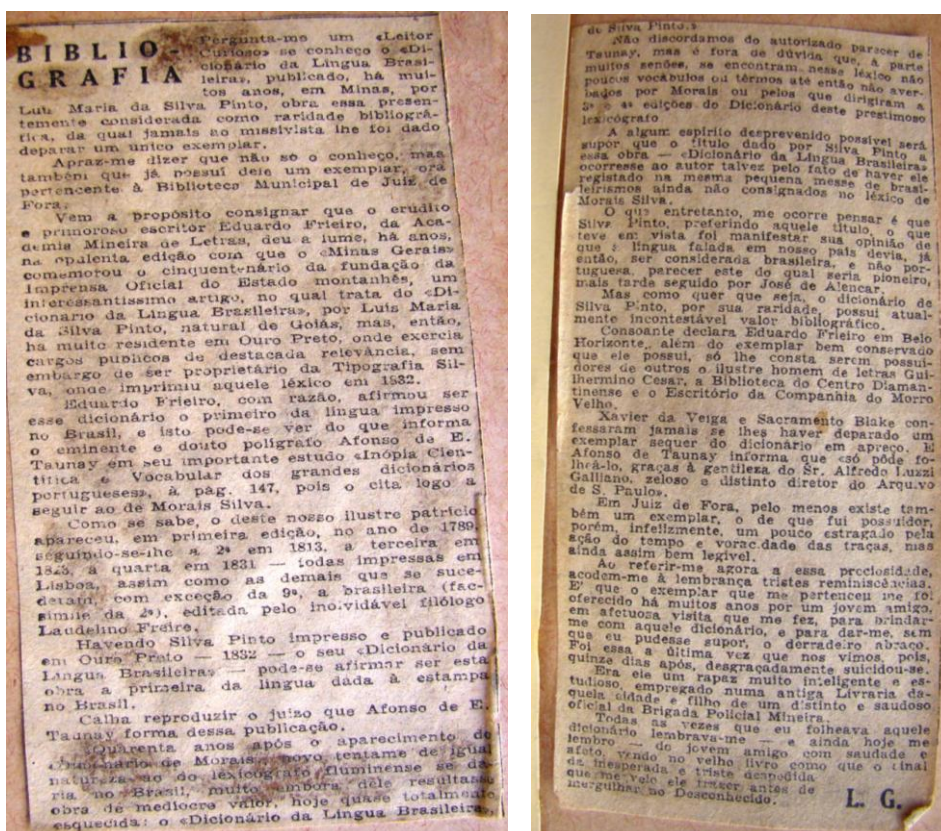 BIBLIO-
GRAFIA
Pergunta-me um «Leitor
Curioso» se conheço o «Di-
cionário da Língua Brasi-
leira», publicado, há mui-
tos anos, em Minas, por
Luís Maria da Silva Pinto, obra essa presen-
temente considerada como raridade bibliográ-
fica, da qual jamais ao missivista lhe foi dado
deparar um único exemplar.
Apraz-me dizer que não só o conheço, mas
também que já possuí dele um exemplar, ora
pertencente à Biblioteca Municipal de Juiz de
Fora.
Vem a propósito consignar que o erudito
e primoroso escritor Eduardo Frieiro, da Aca-
demia Mineira de Letras, deu a lume, há anos,
na opulenta edição com que o «Minas Gerais»
comemorou o cinquentenário da fundação da
Imprensa Oficial do Estado montanhês, um
interessantíssimo artigo, no qual trata do «Di-
cionário da Língua Brasileira», por Luís Maria
da Silva Pinto, natural de Goiás, mas, então,
há muito residente em Ouro Preto, onde exercia
cargos públicos de destacada relevância, sem
embargo de ser proprietário da Tipografia Sil-
va, onde imprimiu aquele léxico em 1832.
Eduardo Frieiro, com razão, afirmou ser
esse dicionário o primeiro da língua impresso
no Brasil, e isto pode-se ver do que informa
o eminente e douto polígrafo Afonso de E.
Taunay em seu importante estudo «Inópia Cien-
tífica e Vocabular dos grandes dicionários
portugueses», à pág. 147, pois o cita logo a
seguir ao de Morais Silva.
Como se sabe, o deste nosso ilustre patrício
apareceu, em primeira edição, no ano de 1789,
seguindo-se-lhe a 2ª em 1813, a terceira em
1823, a quarta em 1831 — todas impressas em
Lisboa, assim como as demais que se suce-
deram, com exceção da 9ª, a brasileira (fac-
simile da 2ª), editada pelo inolvidável filólogo
Laudelino Freire.
Havendo Silva Pinto impresso e publicado
em Ouro Preto — 1832 — o seu «Dicionário da
Língua Brasileira» — pode-se afirmar ser esta
obra a primeira da língua dada à estampa
no Brasil.
Calha reproduzir o juízo que Afonso de E.
Taunay forma dessa publicação.
«Quarenta anos após o aparecimento do
dicionário de Morais, novo tentame de igual
natureza ao do lexicógrafo fluminense se da-
ria no Brasil, muito embora dele resultasse
obra de medíocre valor, hoje quase totalmente
esquecida: o «Dicionário da Língua Brasileira»
de Silva Pinto.»
Não discordamos do autorizado parecer de
Taunay, mas é fora de dúvida que, à parte
muitos senões, se encontram nesse léxico não
poucos vocábulos ou têrmos até então não aver-
bados por Morais ou pelos que dirigiram a
3ª e 4ª edições do Dicionário deste prestimoso
lexicógrafo
A algum espírito desprevenido possível será
supor que o título dado por Silva Pinto a
essa obra — «Dicionário da Língua Brasileira»
ocorresse ao autor talvez pelo fato de haver ele
registado na mesma pequena messe de brasi-
leirismos ainda não consignados no léxico de
Morais Silva.
O que entretanto, me ocorre pensar é que
Silva Pinto, preferindo aquele título, o que
teve em vista foi manifestar sua opinião de
que a língua falada em nosso país devia, já
então, ser considerada brasileira, e não por-
tuguesa, parecer este do qual seria pioneiro,
mais tarde seguido por José de Alencar.
Mas como quer que seja, o dicionário de
Silva Pinto, por sua raridade, possui atual-
mente incontestável valor bibliográfico.
Consoante declara Eduardo Frieiro em Belo
Horizonte, além do exemplar bem conservado
que ele possui, só lhe consta serem possui-
dores de outros o ilustre homem de letras Gui-
lhermino Cesar, a Biblioteca do Centro Diaman-
tinense e o Escritório da Companhia do Morro
Velho.
Xavier da Veiga e Sacramento Blake con-
fessaram jamais se lhes haver deparado um
exemplar sequer do dicionário em apreço. E
Afonso de Taunay informa que «só pôde fo-
lheá-lo, graças à gentileza do Sr. Alfredo Luzzi
Galliano, zeloso e distinto diretor do Arquivo
de S. Paulo».
Em Juiz de Fora, pelo menos existe tam-
bém um exemplar, o de que fui possuidor,
porém, infelizmente, um pouco estragado pela
ação do tempo e voracidade das traças, mas
ainda assim bem legível.
Ao referir-me agora a essa preciosidade,
acodem-me à lembrança tristes reminiscências.
E' que o exemplar que me pertenceu me foi
oferecido há muitos anos por um jovem amigo,
em afetuosa visita que me fez, para brindar-
me com aquele dicionário, e para dar-me, sem
que eu pudesse supor, o derradeiro abraço.
Foi essa a última vez que nos vimos, pois,
quinze dias após, desgraçadamente suicidou-se.
Era ele um rapaz muito inteligente e es-
tudioso, empregado numa antiga Livraria da-
quela cidade e filho de um distinto e saudoso
oficial da Brigada Policial Mineira.
Todas as vezes que eu folheava aquele
dicionário lembrava-me — e ainda hoje me
lembro — do jovem amigo com saudade e
afeto, vendo no velho livro como que o sinal
da inesperada e triste despedida
que me veio ele trazer antes de
mergulhar no Desconhecido.
L. G.